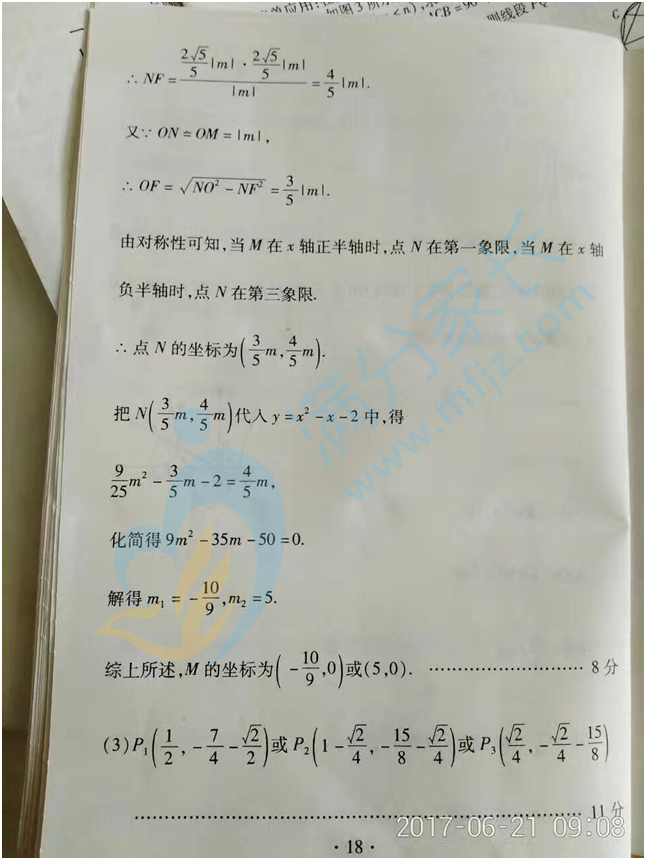 如图3所
<n),
ACB=90°
则线段
C
∴ NF = (2√5/5|m| · 2√5/5|m|)/|m| = 4/5|m|.
又∵ ON = OM = |m|,
∴ OF = √(NO² − NF²) = 3/5|m|.
由对称性可知,当 M 在 x 轴正半轴时,点 N 在第一象限,当 M 在 x 轴
负半轴时,点 N 在第三象限.
∴ 点 N 的坐标为(3/5m, 4/5m).
把 N(3/5m, 4/5m)代入 y = x² − x − 2 中,得
9/25m² − 3/5m − 2 = 4/5m,
化简得 9m² − 35m − 50 = 0.
解得 m₁ = −10/9, m₂ = 5.
综上所述,M 的坐标为(−10/9, 0)或(5,0). ………………………… 8 分
(3)P₁(1/2, −7/4 − √2/2)或 P₂(1 − √2/4, −15/8 − √2/4)或 P₃(√2/4, −√2/4 − 15/8)
………………………………………………………………………… 11 分
· 18 ·
满分家长
www.mfjz.com
2017-06-21 09:08